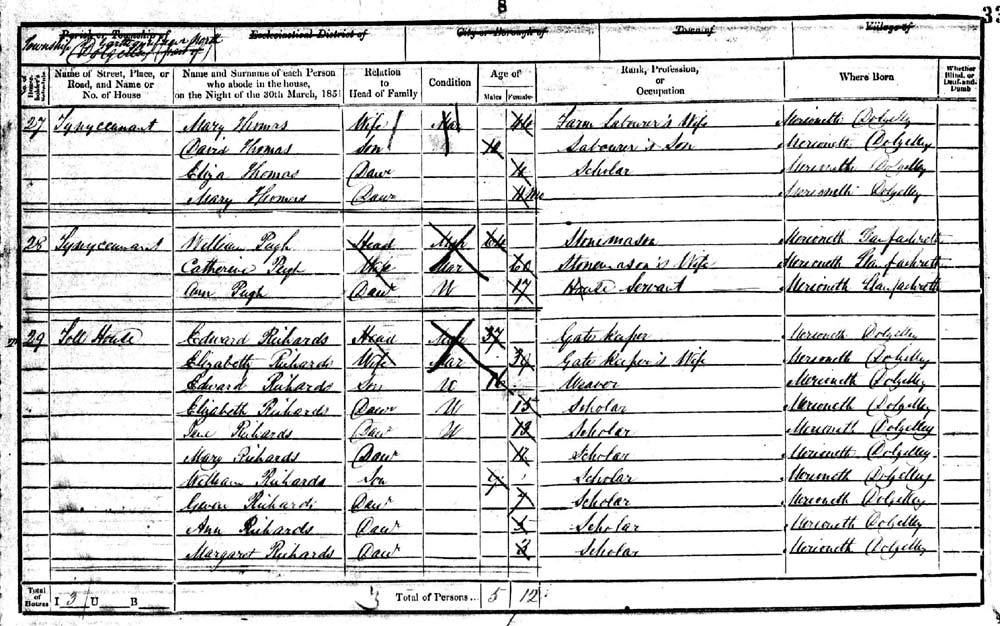 8
33
Parish or Township of
Ecclesiastical District of
City or Borough of
Town of
Village of
Township Dolgelley (part of)
No. of House-holder's Schedule
Name of Street, Place, or Road, and Name or No. of House
Name and Surname of each Person who abode in the house, on the Night of the 30th March, 1851
Relation to Head of Family
Condition
Age of
Males Females
Rank, Profession, or Occupation
Where Born
Whether Blind, or Deaf-and-Dumb
27 Tynyceunant Mary Thomas Wife Mar Farm Labourer's Wife Merioneth Dolgelley
David Thomas Son Labourer's Son Merioneth Dolgelley
Eliza Thomas Dawr Scholar Merioneth Dolgelley
Mary Thomas Dawr Merioneth Dolgelley
28 Tynyceunant William Pugh Head Mar 64 Stonemason Merioneth Llanfachreth
Catherine Pugh Wife Mar 60 Stonemason's Wife Merioneth Llanfachreth
Ann Pugh Dawr U 17 House Servant Merioneth Llanfachreth
29 Toll House Edward Richards Head Mar 37 Gate Keeper Merioneth Dolgelley
Elizabeth Richards Wife Mar Gate Keeper's Wife Merioneth Dolgelley
Edward Richards Son U 16 Weaver Merioneth Dolgelley
Elizabeth Richards Dawr U 15 Scholar Merioneth Dolgelley
Jane Richards Dawr U 13 Scholar Merioneth Dolgelley
Mary Richards Dawr 11 Scholar Merioneth Dolgelley
William Richards Son Scholar Merioneth Dolgelley
Gwen Richards Dawr 7 Scholar Merioneth Dolgelley
Ann Richards Dawr 5 Scholar Merioneth Dolgelley
Margaret Richards Dawr 3 Scholar Merioneth Dolgelley
Total of Houses I 3 U B 3 Total of Persons.. 5 12